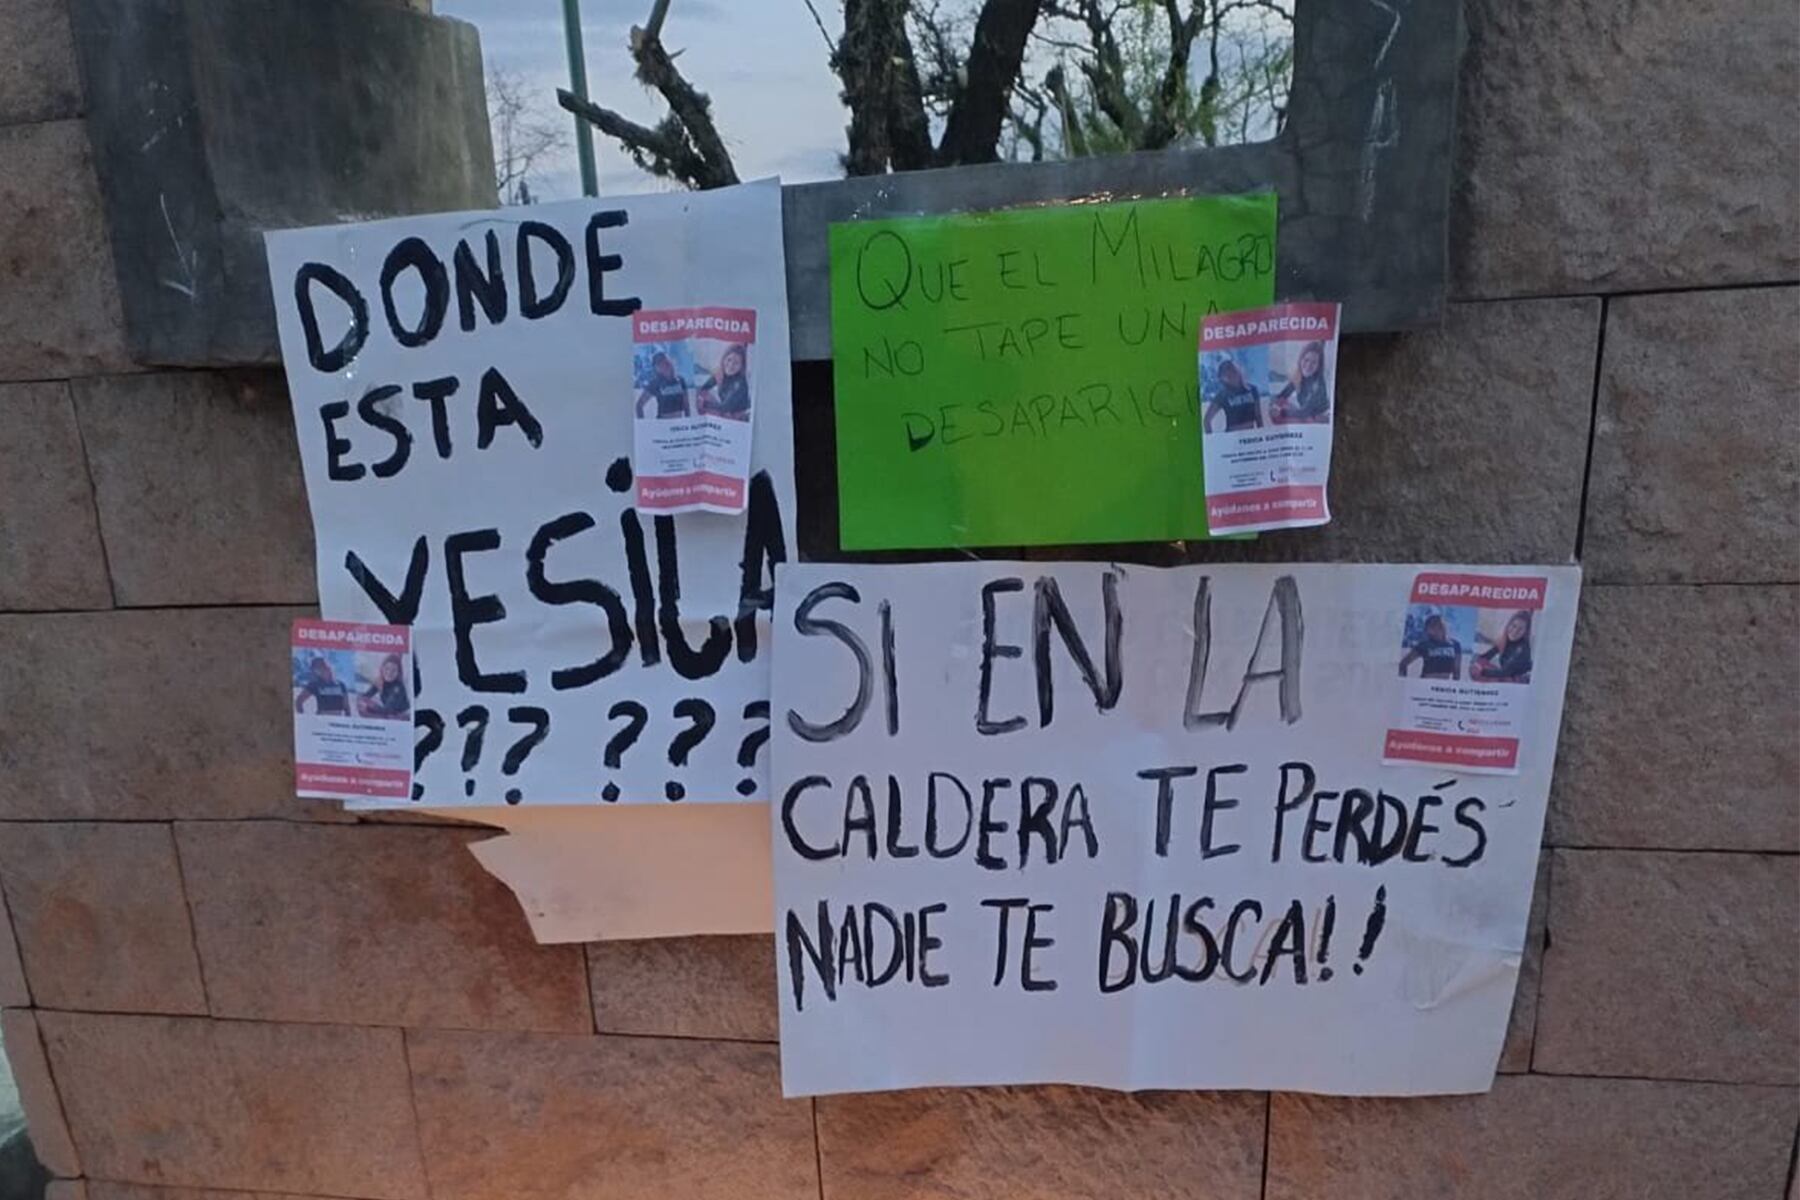 DONDE
ESTA
YESiCA
??? ???
QUE EL MILAGRO
NO TAPE UNA
DESAPARICI
SI EN LA
CALDERA TE PERDÉS
NADIE TE BUSCA!!
DESAPARECIDA
YESICA GUTIERREZ
Ayúdanos a compartir
DESAPARECIDA
YESICA GUTIERREZ
Ayúdanos a compartir
DESAPARECIDA
YESICA GUTIERREZ
Ayúdanos a compartir
DESAPARECIDA
YESICA GUTIERREZ
Ayúdanos a compartir